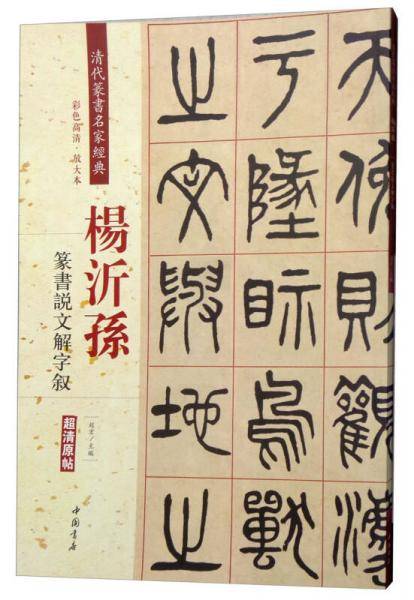 清代篆書名家經典
彩色高清·放大本
楊沂孫
篆書説文解字叙
趙宏/主編
超清原帖
中國書店
天俯則觀灋
亏墬眎鳥獸
之文與地之